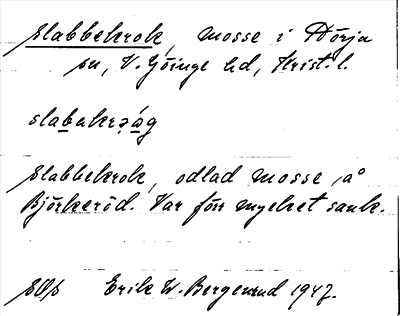 Slabbekrok, mosse i Hörja
sn, V. Göinge hd, Krist. l.
slabakrǫ́g
Slabbekrok, odlad mosse å
Björkeröd. Var förr mycket sank.
Erik W. Bergenrud 1947.